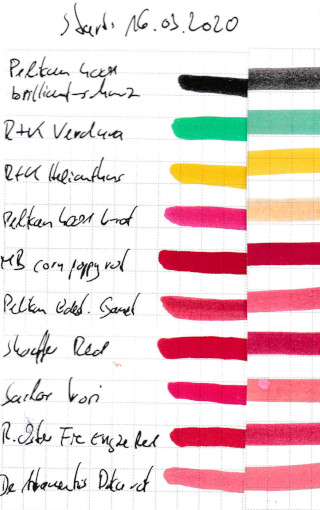 Start: 16.03.2020
Pelikan 4001
brillant-schwarz
R+K Verdura
R+K Helianthus
Pelikan 4001 b-rot
MB corn poppy red
Pelikan Edel. Garnet
Sheaffer Red
Sailor
R. Oster Fire Engine Red
De Atramentis